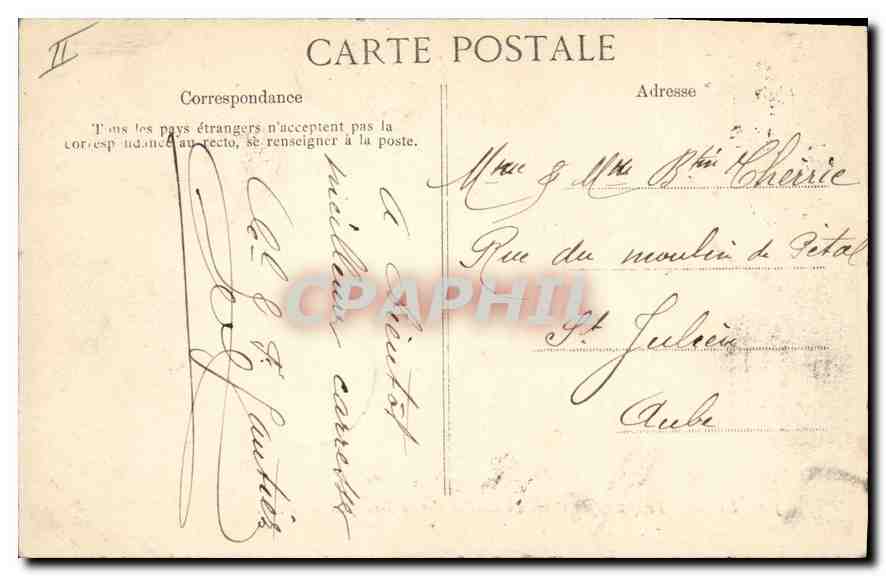 II
CARTE POSTALE
Correspondance
Adresse
Tous les pays étrangers n'acceptent pas la
correspondance au recto, se renseigner à la poste.
A bientôt
meilleures caresses
Mme & Mlle Btin Thérrie
Rue du moulin de Pétal
St Julien
Aube
CPAPHIL